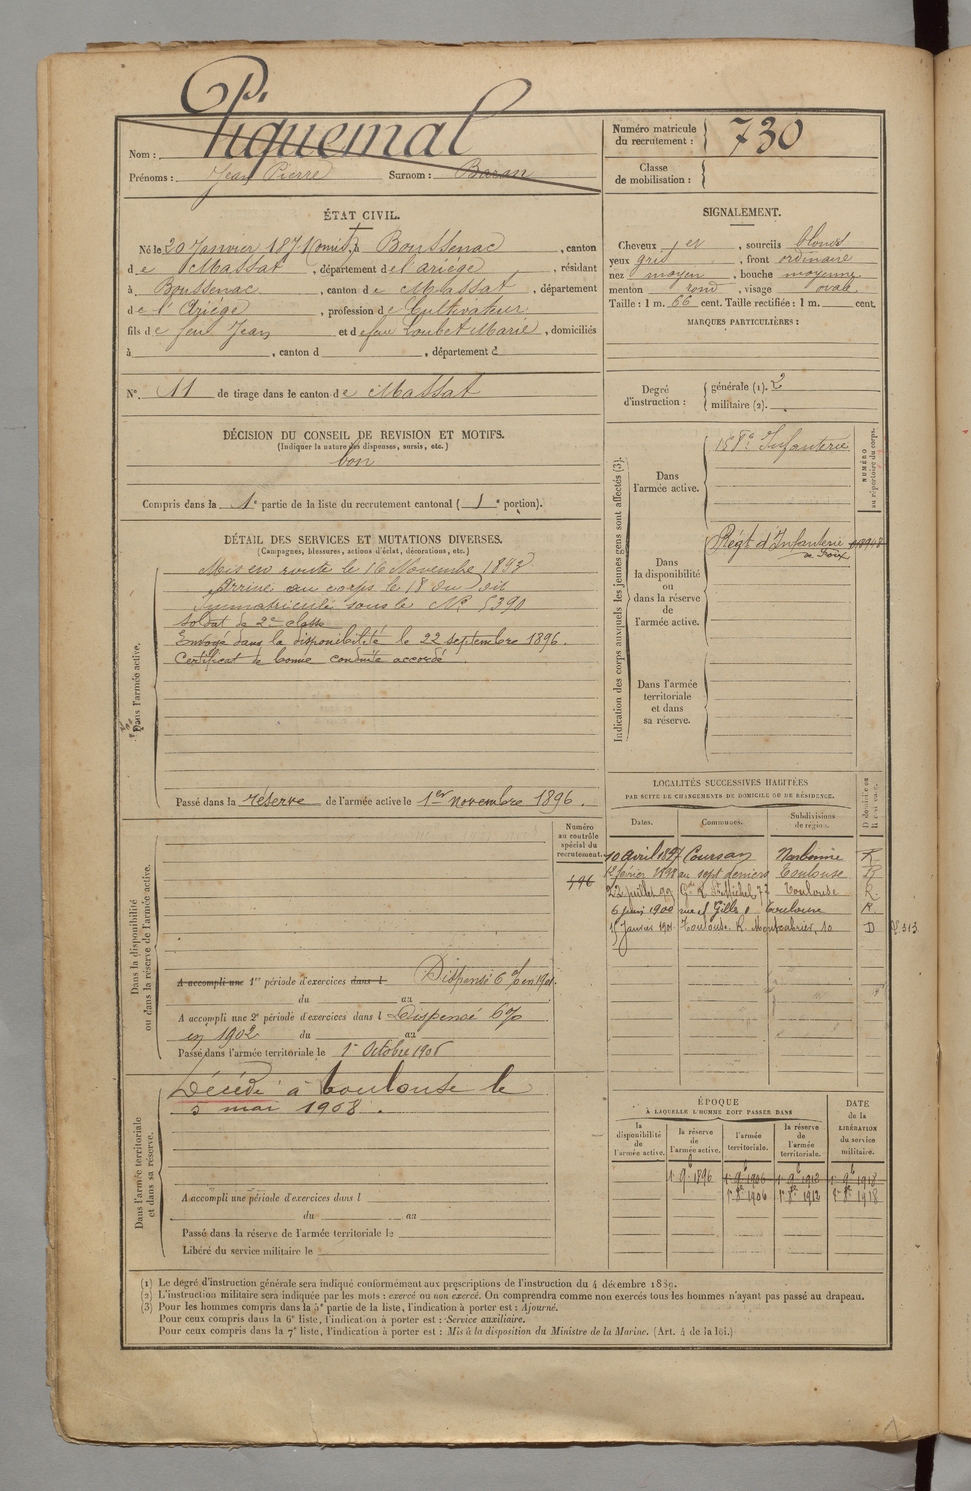 Piquemal
Nom :
Prénoms : Jean Pierre Surnom : Baran
Numéro matricule
du recrutement : 730
Classe
de mobilisation :
ÉTAT CIVIL.
Né le 20 Janvier 1871 (omis), à Boussenac, canton
de Massat, département de l'ariége, résidant
à Boussenac, canton de Massat, département
de l'Ariége, profession de Cultivateur
fils de feu Jean et de feue Loubet Marie, domiciliés
à , canton d , département d
N° 11 de tirage dans le canton de Massat
DÉCISION DU CONSEIL DE REVISION ET MOTIFS.
(Indiquer la nature des dispenses, sursis, etc.)
bon
Compris dans la 1e partie de la liste du recrutement cantonal ( 1e portion).
DÉTAIL DES SERVICES ET MUTATIONS DIVERSES.
(Campagnes, blessures, actions d'éclat, décorations, etc.)
Dans l'armée active.
Mis en route le 16 Novembre 1893
Arrivé au corps le 18 du dit
Immatriculé sous le N° 5390
Soldat de 2e classe
Envoyé dans la disponibilité le 22 septembre 1896.
Certificat de bonne conduite accordé.
Passé dans la réserve de l'armée active le 1er novembre 1896.
Dans la disponibilité
ou dans la réserve de l'armée active.
Numéro
au contrôle
spécial du
recrutement.
A accompli une 1re période d'exercices dans l Dispensé 6 % en 1901.
du au
A accompli une 2e période d'exercices dans l Dispensé 6%
en 1902 du au
Passé dans l'armée territoriale le 1er Octobre 1906
Dans l'armée territoriale
et dans sa réserve.
Décédé à toulouse le
5 mai 1908.
A accompli une période d'exercices dans l
du au
Passé dans la réserve de l'armée territoriale le
Libéré du service militaire le
SIGNALEMENT.
Cheveux et , sourcils blonds
yeux gris , front ordinaire
nez moyen , bouche moyenne
menton rond , visage ovale
Taille : 1 m. 66 cent. Taille rectifiée : 1 m. cent.
MARQUES PARTICULIÈRES :
Degré
d'instruction :
générale (1). 2
militaire (2).
Indication des corps auxquels les jeunes gens sont affectés (3).
NUMÉRO
au répertoire du corps.
Dans
l'armée active.
158e Infanterie
Dans
la disponibilité
ou
dans la réserve
de
l'armée active.
Régt d'Infanterie
de Foix
Dans l'armée
territoriale
et dans
sa réserve.
LOCALITÉS SUCCESSIVES HABITÉES
PAR SUITE DE CHANGEMENTS DE DOMICILE OU DE RÉSIDENCE.
Dates. Communes. Subdivisions
de région.
10 avril 1897 Coursan Narbonne R
12 février 1898 au sept deniers Toulouse R
22 juillet 99 Gde R. St Michel 77 Toulouse R.
6 juin 1900 rue St Gilles Toulouse R.
15 Janvier 1901 Toulouse. R. Montcabrier, 10 D
ÉPOQUE
À LAQUELLE L'HOMME DOIT PASSER DANS
DATE
de la
LIBÉRATION
du service
militaire.
la
disponibilité
de
l'armée active.
la réserve
de
l'armée active.
l'armée
territoriale.
la réserve
de
l'armée
territoriale.
1er 9b 1896 1er 9b 1906 1er 9b 1912 1er 9b 1918
1er 8bre 1906 1er 8bre 1912 1er 8bre 1918
(1) Le degré d'instruction générale sera indiqué conformément aux prescriptions de l'instruction du 4 décembre 1889.
(2) L'instruction militaire sera indiquée par les mots : exercé ou non exercé. On comprendra comme non exercés tous les hommes n'ayant pas passé au drapeau.
(3) Pour les hommes compris dans la 5e partie de la liste, l'indication à porter est : Ajourné.
Pour ceux compris dans la 6e liste, l'indication à porter est : Service auxiliaire.
Pour ceux compris dans la 7e liste, l'indication à porter est : Mis à la disposition du Ministre de la Marine. (Art. 4 de la loi.)